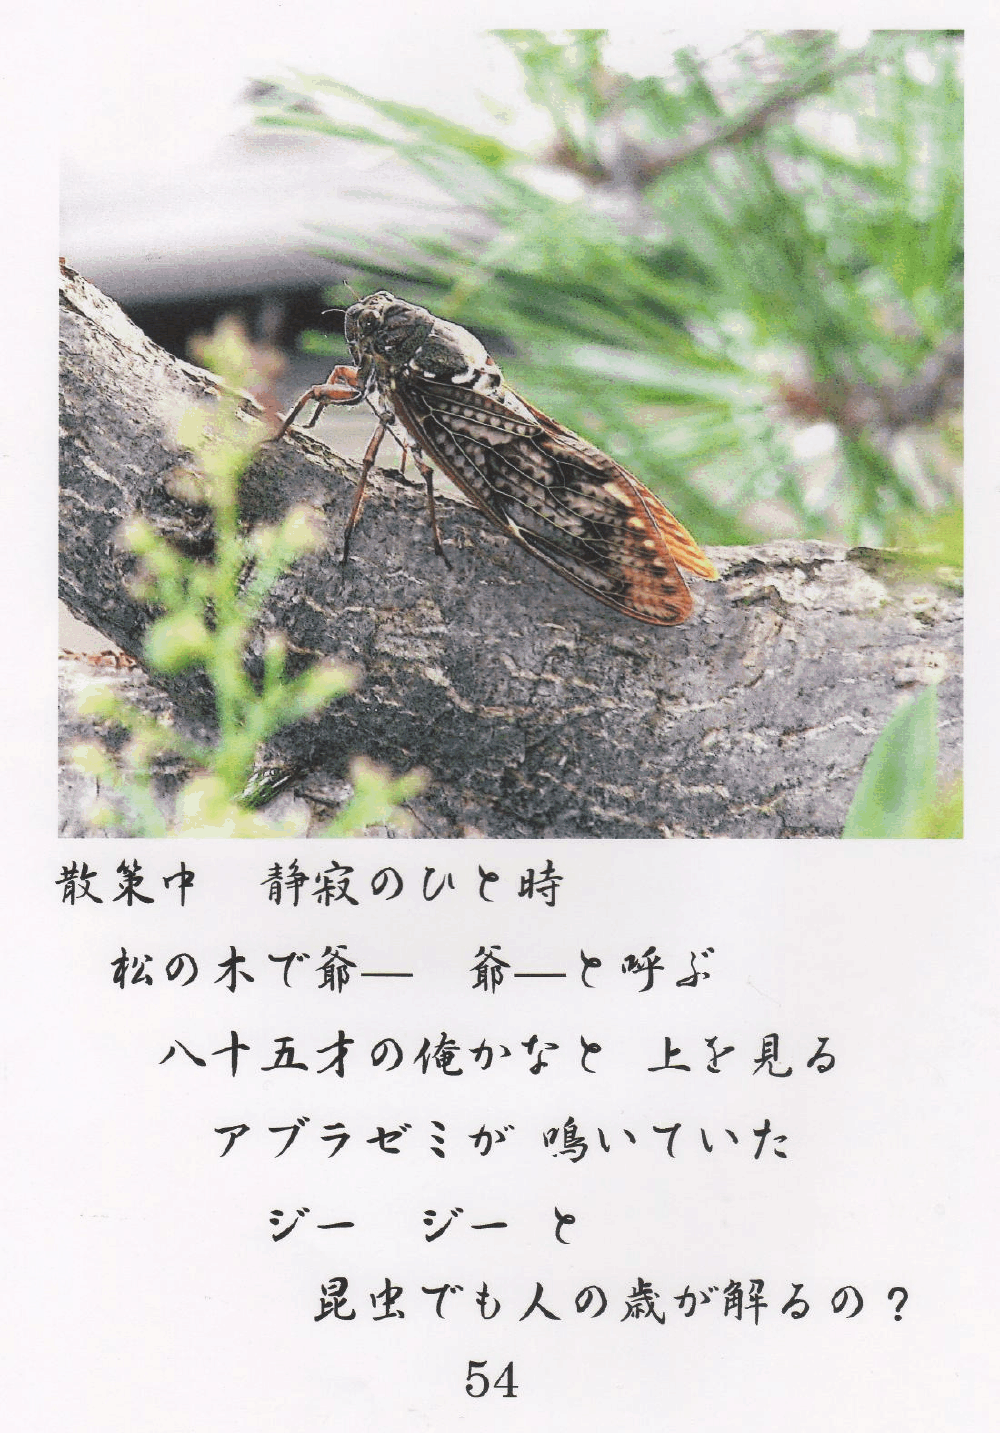 散策中　静寂のひと時
松の木で爺―　爺―と呼ぶ
八十五才の俺かなと 上を見る
アブラゼミが 鳴いていた
ジー　ジー と
昆虫でも人の歳が解るの?
54